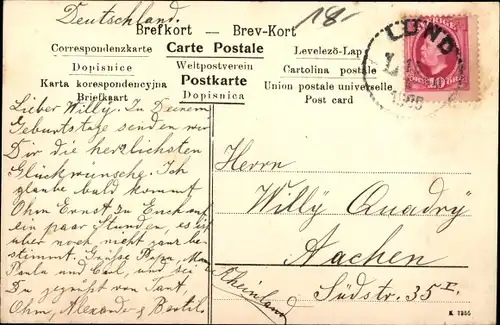 Deutschland.
18.-
Brefkort — Brev-Kort
Correspondenzkarte Carte Postale Levelező-Lap
Dopisnice Weltpostverein Cartolina postale
Karta korespondencyjna Postkarte Union postale universelle
Briefkaart Dopisnica Post card
LUND
10 ÖRE
Lieber Willy. Zu Deinem
Geburtstage senden wir
Dir die herzlichsten
Glückwünsche. Ich
glaube bald kommt
Ohm Ernst zu Euch auf
ein paar Stunden, es ist
aber noch nicht ganz be-
stimmt. Grüsse Papa, Mama
Paula und Carl, und sei
Du gegrüsst von Tant,
Ohm, Alexander & Bertil.
Herrn
Willÿ Quadrÿ
Aachen
Südstr. 35 I.
(Rheinland)